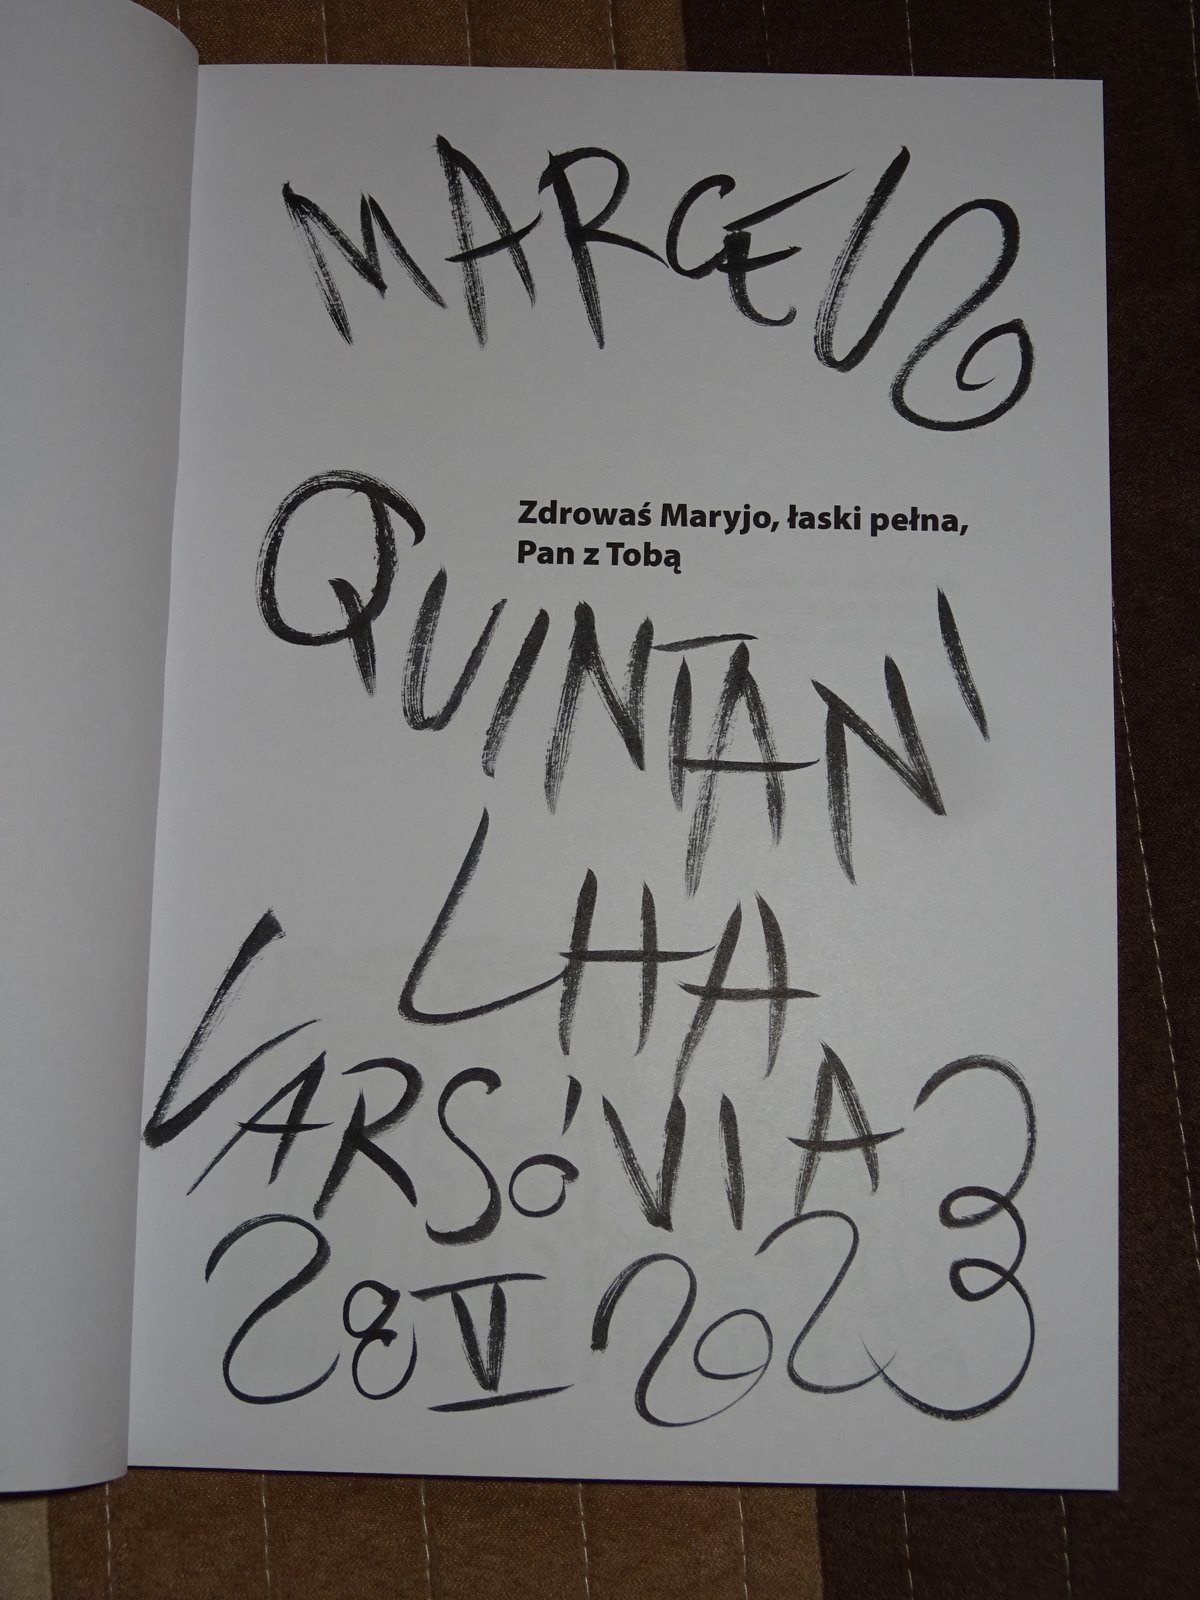 MARCELO
Zdrowaś Maryjo, łaski pełna,
Pan z Tobą
QUINTANI
LHA
VARSÓVIA
28 V 2023